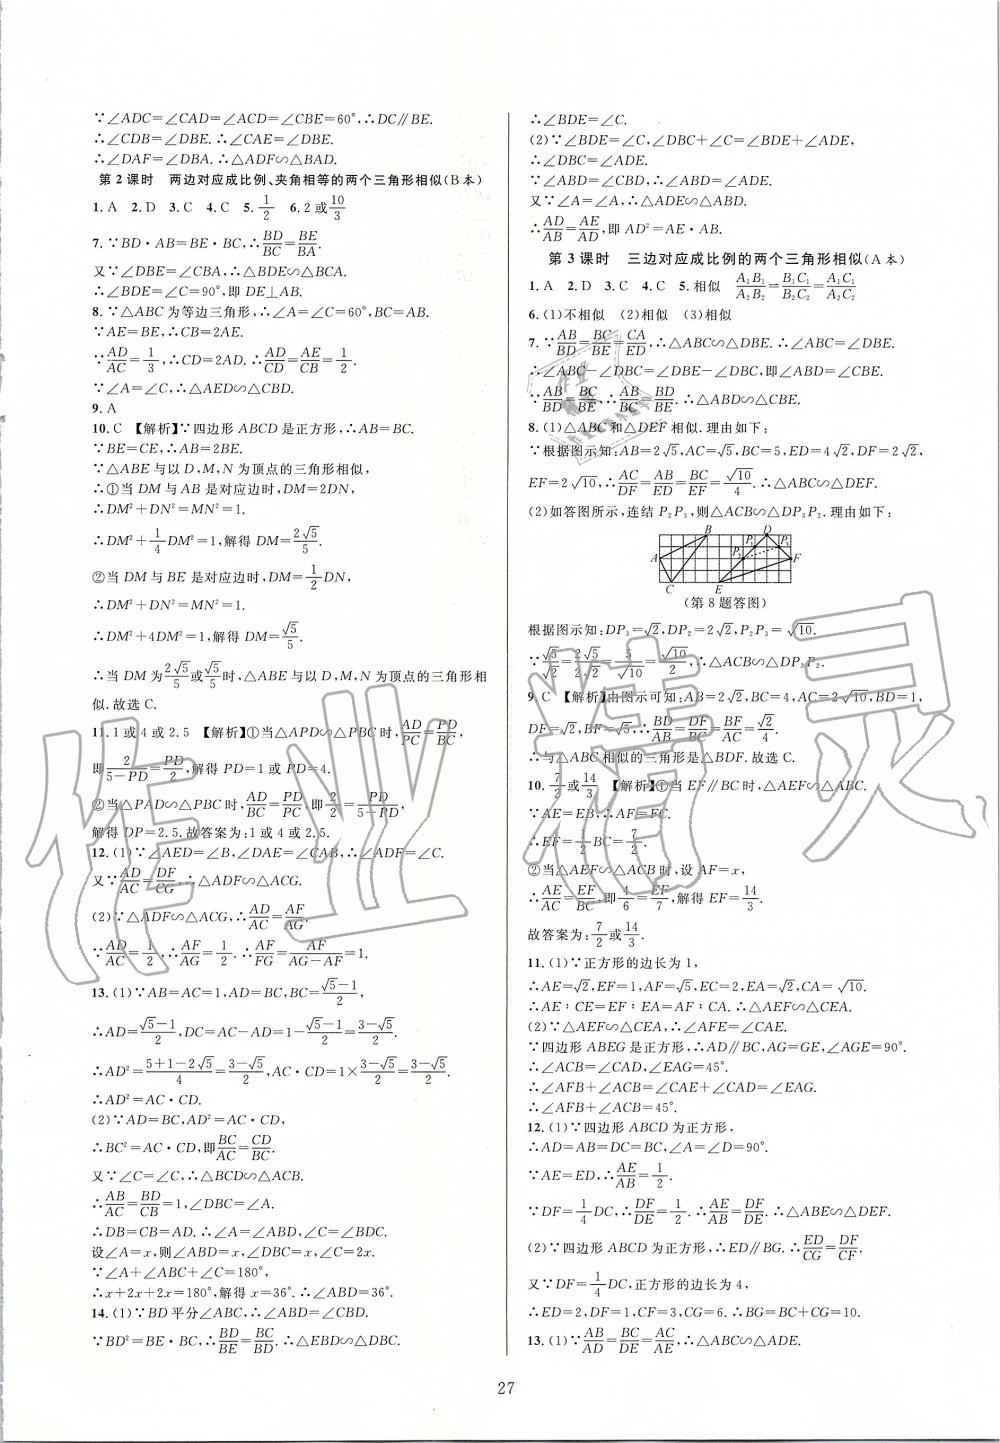 ∵∠ADC=∠CAD=∠ACD=∠CBE=60°,∴DC∥BE.
∴∠CDB=∠DBE. ∴∠CAE=∠DBE.
∴∠DAF=∠DBA. ∴△ADF∽△BAD.
第2课时 两边对应成比例、夹角相等的两个三角形相似(B本)
1.A 2.D 3.C 4.C 5.1/2 6.2或10/3
7.∵BD·AB=BE·BC,∴BD/BC=BE/BA.
又∵∠DBE=∠CBA,∴△BDE∽△BCA.
∴∠BDE=∠C=90°,即DE⊥AB.
8.∵△ABC为等边三角形,∴∠A=∠C=60°,BC=AB.
∵AE=BE,∴CB=2AE.
∵AD/AC=1/3,∴CD=2AD. ∴AD/CD=AE/CB=1/2.
∵∠A=∠C,∴△AED∽△CBD.
9.A
10.C 【解析】∵四边形ABCD是正方形,∴AB=BC.
∵BE=CE,∴AB=2BE.
∵△ABE与以D,M,N为顶点的三角形相似,
∴①当DM与AB是对应边时,DM=2DN,
∴DM²+DN²=MN²=1.
∴DM²+1/4DM²=1,解得DM=2√5/5.
②当DM与BE是对应边时,DM=1/2DN,
∴DM²+DN²=MN²=1.
∴DM²+4DM²=1,解得DM=√5/5.
∴当DM为2√5/5或√5/5时,△ABE与以D,M,N为顶点的三角形相
似.故选C.
11.1或4或2.5 【解析】①当△APD∽△PBC时,AD/PC=PD/BC,
即2/5-PD=PD/2,解得PD=1或PD=4.
②当△PAD∽△PBC时,AD/BC=PD/PC,即2/2=PD/5-PD,
解得DP=2.5.故答案为:1或4或2.5.
12.(1)∵∠AED=∠B,∠DAE=∠CAB,∴∠ADF=∠C.
又∵AD/AC=DF/CG,∴△ADF∽△ACG.
(2)∵△ADF∽△ACG,∴AD/AC=AF/AG.
∵AD/AC=1/2,∴AF/AG=1/2.∴AF/FG=AF/AG-AF=1.
13.(1)∵AB=AC=1,AD=BC,BC=√5-1/2,
∴AD=√5-1/2,DC=AC-AD=1-√5-1/2=3-√5/2.
∴AD²=5+1-2√5/4=3-√5/2,AC·CD=1×3-√5/2=3-√5/2.
∴AD²=AC·CD.
(2)∵AD=BC,AD²=AC·CD,
∴BC²=AC·CD,即BC/AC=CD/BC.
又∵∠C=∠C,∴△BCD∽△ACB.
∴AB/AC=BD/CB=1,∠DBC=∠A.
∴DB=CB=AD. ∴∠A=∠ABD,∠C=∠BDC.
设∠A=x,则∠ABD=x,∠DBC=x,∠C=2x.
∵∠A+∠ABC+∠C=180°,
∴x+2x+2x=180°,解得x=36°.∴∠ABD=36°.
14.(1)∵BD平分∠ABC,∴∠ABD=∠CBD.
∵BD²=BE·BC,∴BD/BE=BC/BD.∴△EBD∽△DBC.
∴∠BDE=∠C.
(2)∵∠BDE=∠C,∠DBC+∠C=∠BDE+∠ADE,
∴∠DBC=∠ADE.
∵∠ABD=∠CBD,∴∠ABD=∠ADE.
又∵∠A=∠A,∴△ADE∽△ABD.
∴AD/AB=AE/AD,即AD²=AE·AB.
第3课时 三边对应成比例的两个三角形相似(A本)
1.A 2.D 3.C 4.C 5.相似 A₁B₁/A₂B₂=B₁C₁/B₂C₂=A₁C₁/A₂C₂
6.(1)不相似 (2)相似 (3)相似
7.∵AB/BD=BC/BE=CA/ED,∴△ABC∽△DBE. ∴∠ABC=∠DBE.
∴∠ABC-∠DBC=∠DBE-∠DBC,即∠ABD=∠CBE.
∵AB/BD=BC/BE,∴AB/BC=BD/BE.∴△ABD∽△CBE.
8.(1)△ABC和△DEF相似.理由如下:
∵根据图示知:AB=2√5,AC=√5,BC=5,ED=4√2,DF=2√2,
EF=2√10,∴AC/DF=AB/ED=BC/EF=√10/4.∴△ABC∽△DEF.
(2)如答图所示,连结P₂P₃,则△ACB∽△DP₃P₂.理由如下:
A B C D E F P₁ P₂ P₃
(第8题答图)
根据图示知:DP₃=√2,DP₂=2√2,P₂P₃=√10.
∵√5/√2=2√5/2√2=5/√10,∴△ACB∽△DP₃P₂.
9.C 【解析】由图示可知:AB=2√2,BC=4,AC=2√10,BD=1,
DF=√2,BF=√5,∴BD/AB=DF/BC=BF/AC=√2/4.
∴与△ABC相似的三角形是△BDF.故选C.
10.7/2或14/3 【解析】①当EF∥BC时,△AEF∽△ABC,
∵AE=EB,∴AF=FC.
∴EF=1/2BC=7/2.
②当△AEF∽△ACB时,设AF=x,
∴AE/AC=EF/BC,即4/6=EF/7,解得EF=14/3.
故答案为:7/2或14/3.
11.(1)∵正方形的边长为1,
∴AE=√2,EF=1,AF=√5,EC=2,EA=√2,CA=√10.
∴AE∶CE=EF∶EA=AF∶CA. ∴△AEF∽△CEA.
(2)∵△AEF∽△CEA,∴∠AFE=∠CAE.
∵四边形ABEG是正方形,∴AD∥BC,AG=GE,∠AGE=90°.
∴∠ACB=∠CAD,∠EAG=45°.
∴∠AFB+∠ACB=∠CAE+∠CAD=∠EAG.
∴∠AFB+∠ACB=45°.
12.(1)∵四边形ABCD为正方形,
∴AD=AB=DC=BC,∠A=∠D=90°.
∵AE=ED,∴AE/AB=1/2.
∵DF=1/4DC,∴DF/DE=1/2.∴AE/AB=DF/DE.∴△ABE∽△DEF.
(2)∵四边形ABCD为正方形,∴ED∥BG.∴ED/CG=DF/CF.
又∵DF=1/4DC,正方形的边长为4,
∴ED=2,DF=1,CF=3,CG=6. ∴BG=BC+CG=10.
13.(1)∵AB/AD=BC/DE=AC/AE,∴△ABC∽△ADE.
27
作业精灵